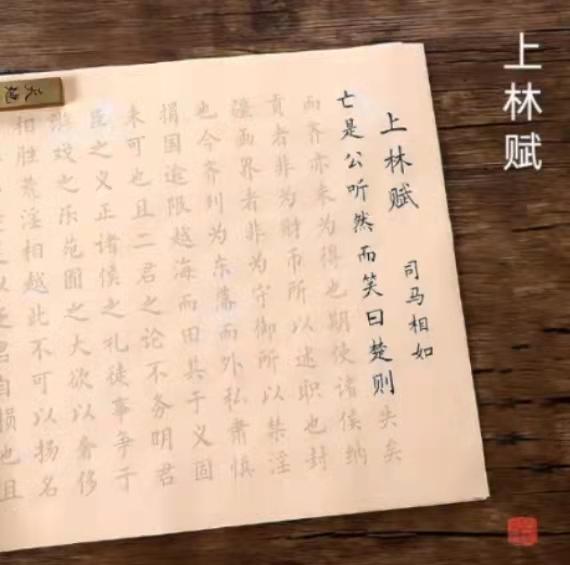 上林赋
上林赋
司马相如
亡是公听然而笑曰楚则失矣
而齐亦未为得也期使诸侯纳
贡者非为财币所以述职也封
疆画界者非为守御所以禁淫
也今齐列为东藩而外私肃慎
捐国逾限越海而田其于义固
未可也且二君之论不务明君
臣之义正诸侯之礼徒事争于
游戏之乐苑囿之大欲以奢侈
相胜荒淫相越此不可以扬名
以贬君自损也且
天地